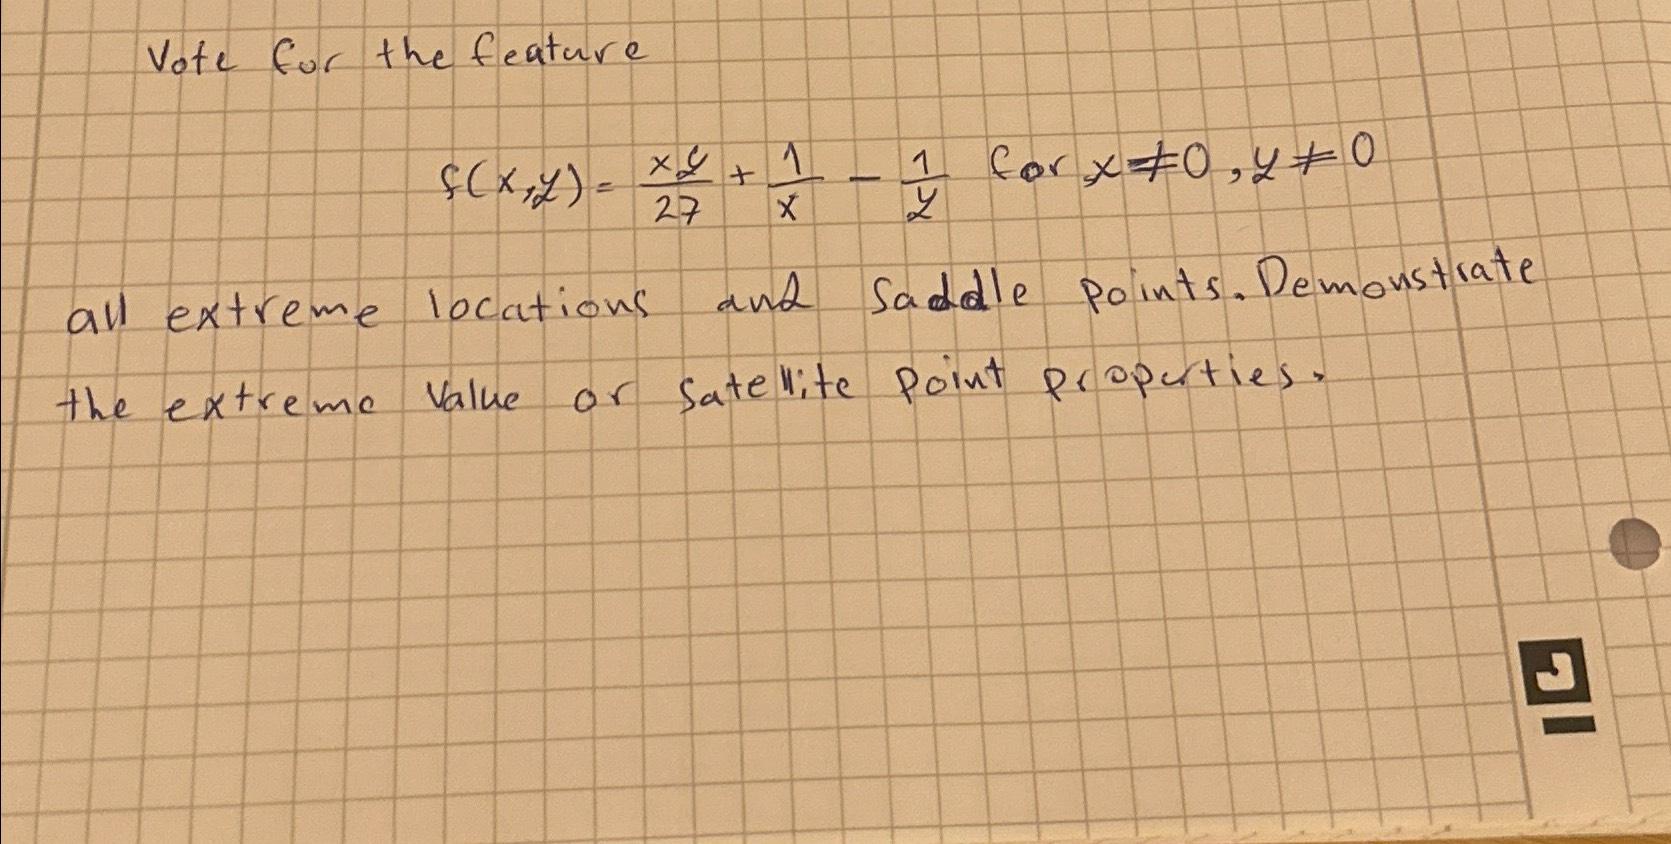 Vote for the feature
f(x,y) = xy/27 + 1/x - 1/y for x ≠ 0, y ≠ 0
all extreme locations and saddle points. Demonstrate
the extreme value or satellite point properties.